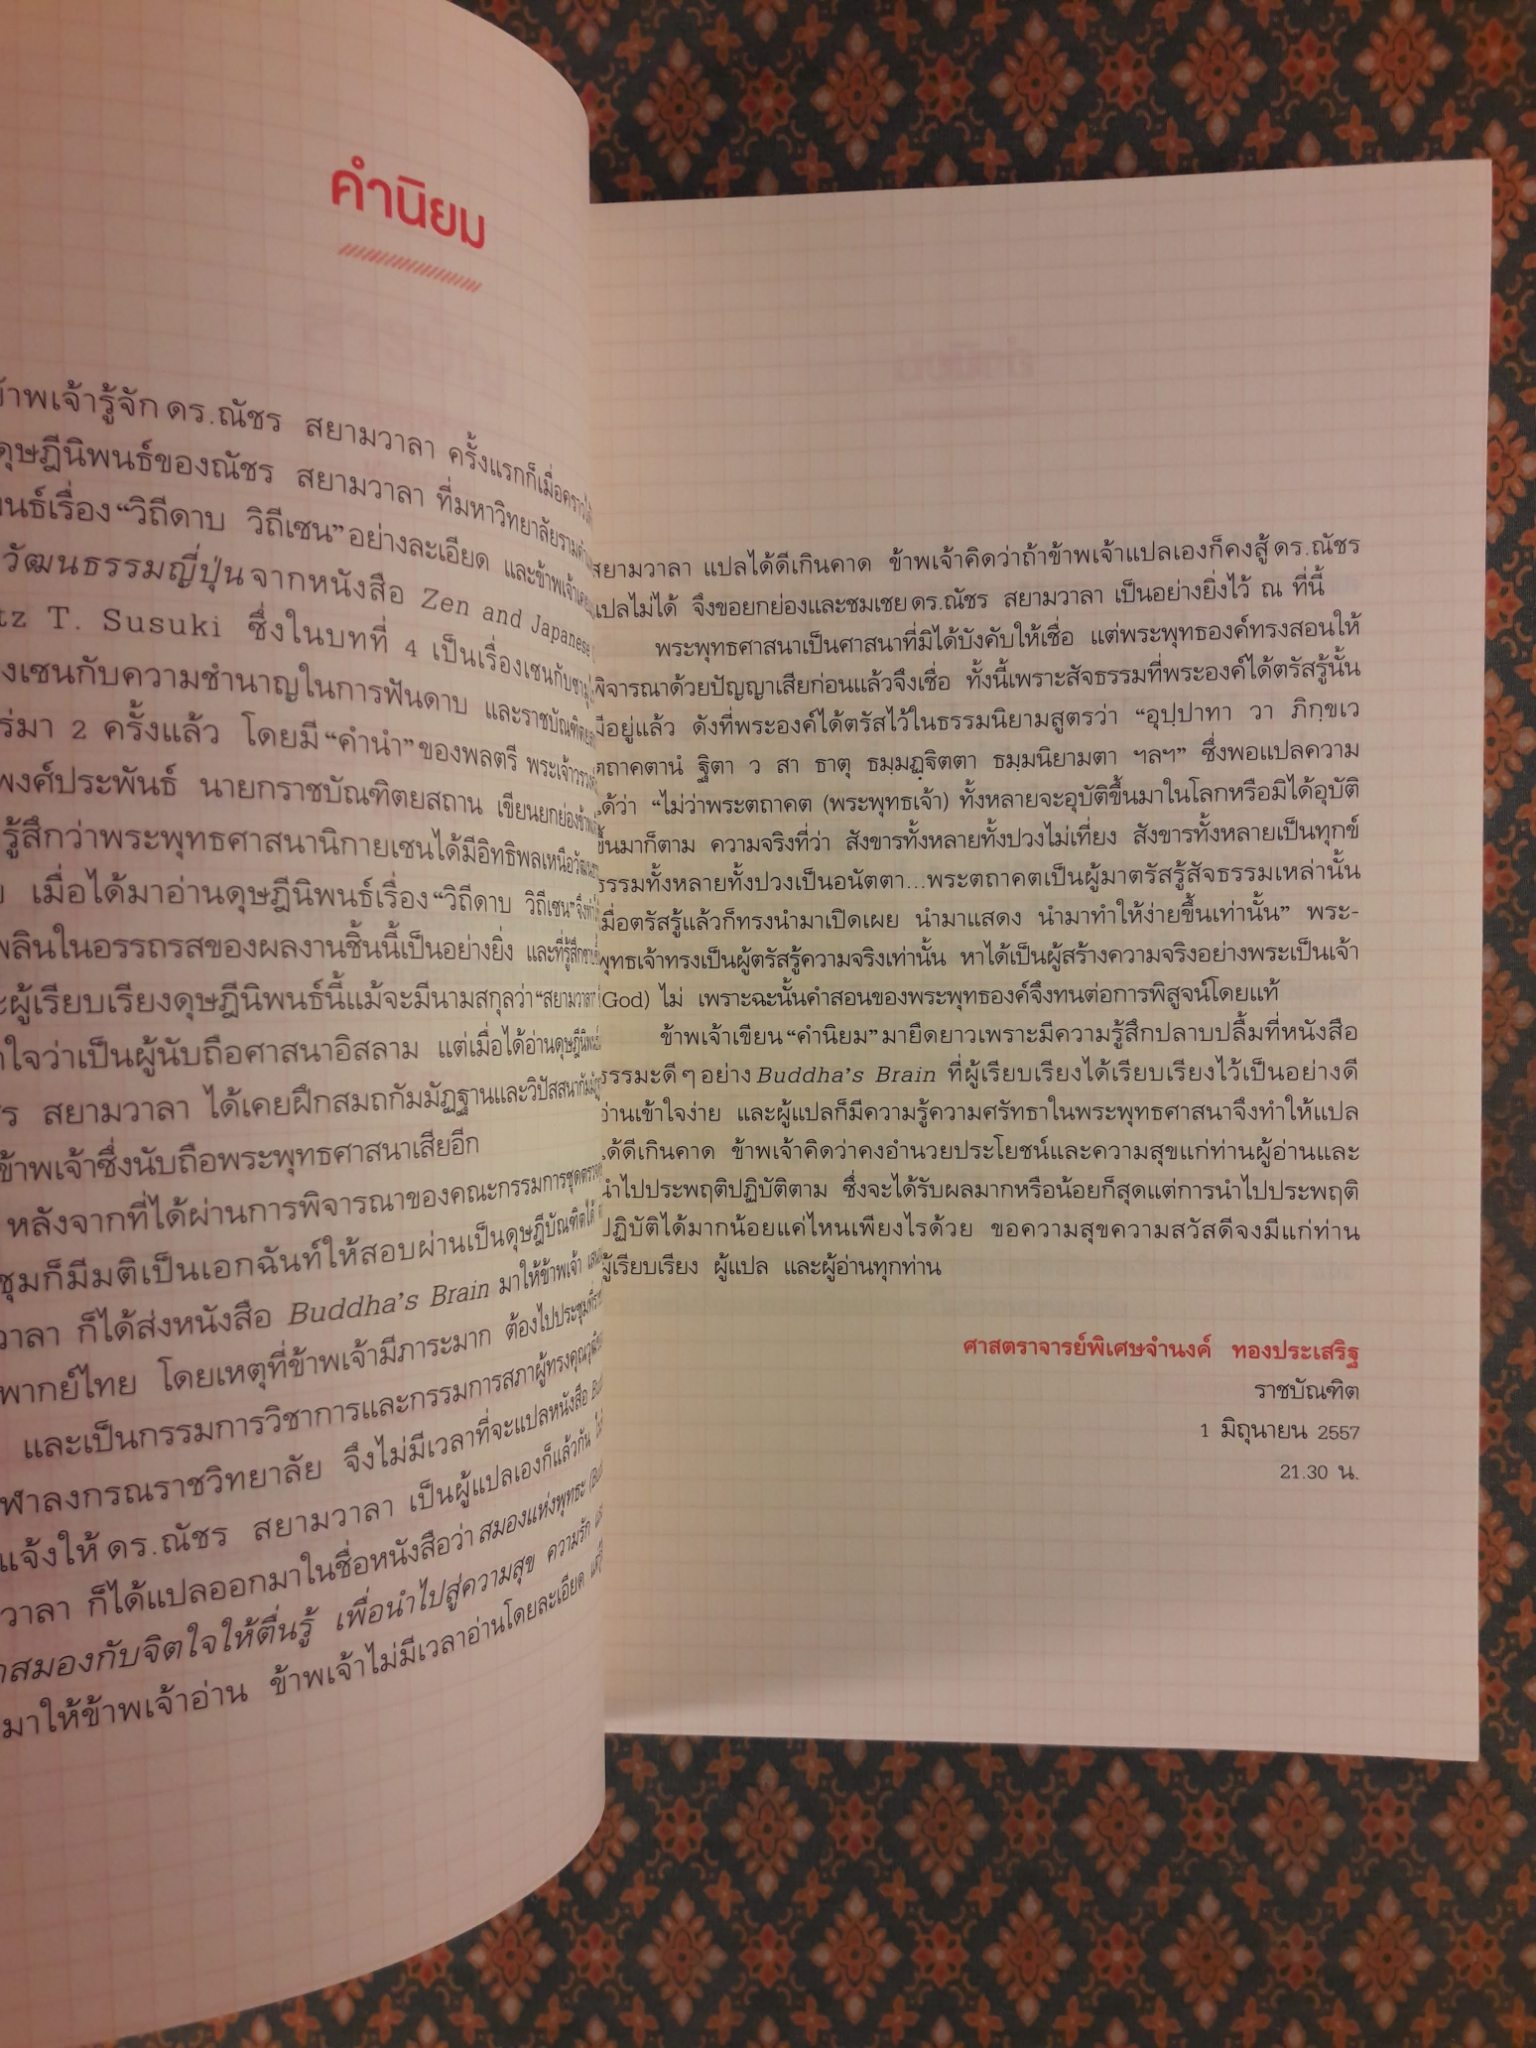 คำนิยม
ข้าพเจ้ารู้จัก ดร.ณัชร สยามวาลา ครั้งแรกก็เมื่อคราวได้
ดุษฎีนิพนธ์ของณัชร สยามวาลา ที่มหาวิทยาลัย
เรื่อง “วิถีดาบ วิถีเซน” อย่างละเอียด และข้าพเจ้า
วัฒนธรรมญี่ปุ่น จากหนังสือ Zen and Japanese
T. Susuki ซึ่งในบทที่ 4 เป็นเรื่องเซนกับ
เซนกับความชำนาญในการฟันดาบ และราชบัณฑิต
มา 2 ครั้งแล้ว โดยมี “คำนำ” ของพลตรี
พงศ์ประพันธ์ นายกราชบัณฑิตยสถาน เขียนยกย่อง
รู้สึกว่าพระพุทธศาสนานิกายเซนได้มีอิทธิพลเหนือ
เมื่อได้มาอ่านดุษฎีนิพนธ์เรื่อง “วิถีดาบ วิถีเซน”
ในอรรถรสของผลงานชิ้นนี้เป็นอย่างยิ่ง
ผู้เรียบเรียงดุษฎีนิพนธ์นี้แม้จะมีนามสกุลว่า “สยามวาลา”
ว่าเป็นผู้นับถือศาสนาอิสลาม แต่เมื่อได้อ่าน
สยามวาลา ได้เคยฝึกสมถกัมมัฏฐานและวิปัสสนา
ข้าพเจ้าซึ่งนับถือพระพุทธศาสนาเสียอีก
หลังจากที่ได้ผ่านการพิจารณาของคณะกรรมการ
ก็มีมติเป็นเอกฉันท์ให้สอบผ่านเป็นดุษฎีบัณฑิตได้
ก็ได้ส่งหนังสือ Buddha’s Brain มาให้ข้าพเจ้า
พากย์ไทย โดยเหตุที่ข้าพเจ้ามีภาระมาก ต้องไปประชุม
และเป็นกรรมการวิชาการและกรรมการสภาผู้ทรงคุณวุฒิ
จึงไม่มีเวลาที่จะแปลหนังสือ
แจ้งให้ ดร.ณัชร สยามวาลา เป็นผู้แปลเองก็แล้วกัน
ก็ได้แปลออกมาในชื่อหนังสือว่า สมองแห่งพุทธะ
สมองกับจิตใจให้ตื่นรู้ เพื่อนำไปสู่ความสุข ความรัก
มาให้ข้าพเจ้าอ่าน ข้าพเจ้าไม่มีเวลาอ่านโดยละเอียด
สยามวาลา แปลได้ดีเกินคาด ข้าพเจ้าคิดว่าถ้าข้าพเจ้าแปลเองก็คงสู้ ดร.ณัชร
แปลไม่ได้ จึงขอยกย่องและชมเชย ดร.ณัชร สยามวาลา เป็นอย่างยิ่งไว้ ณ ที่นี้
พระพุทธศาสนาเป็นศาสนาที่มิได้บังคับให้เชื่อ แต่พระพุทธองค์ทรงสอนให้
พิจารณาด้วยปัญญาเสียก่อนแล้วจึงเชื่อ ทั้งนี้เพราะสัจธรรมที่พระองค์ได้ตรัสรู้นั้น
มีอยู่แล้ว ดังที่พระองค์ได้ตรัสไว้ในธรรมนิยามสูตรว่า “อุปฺปาทา วา ภิกฺขเว
ตถาคตานํ ฐิตา ว สา ธาตุ ธมฺมฏฺฐิตตา ธมฺมนิยามตา ฯลฯ” ซึ่งพอแปลความ
ได้ว่า “ไม่ว่าพระตถาคต (พระพุทธเจ้า) ทั้งหลายจะอุบัติขึ้นมาในโลกหรือมิได้อุบัติ
ขึ้นมาก็ตาม ความจริงที่ว่า สังขารทั้งหลายทั้งปวงไม่เที่ยง สังขารทั้งหลายเป็นทุกข์
ธรรมทั้งหลายทั้งปวงเป็นอนัตตา...พระตถาคตเป็นผู้มาตรัสรู้สัจธรรมเหล่านั้น
เมื่อตรัสรู้แล้วก็ทรงนำมาเปิดเผย นำมาแสดง นำมาทำให้ง่ายขึ้นเท่านั้น” พระ-
พุทธเจ้าทรงเป็นผู้ตรัสรู้ความจริงเท่านั้น หาได้เป็นผู้สร้างความจริงอย่างพระเป็นเจ้า
(God) ไม่ เพราะฉะนั้นคำสอนของพระพุทธองค์จึงทนต่อการพิสูจน์โดยแท้
ข้าพเจ้าเขียน “คำนิยม” มายืดยาวเพราะมีความรู้สึกปลาบปลื้มที่หนังสือ
ธรรมะดี ๆ อย่าง Buddha’s Brain ที่ผู้เรียบเรียงได้เรียบเรียงไว้เป็นอย่างดี
อ่านเข้าใจง่าย และผู้แปลก็มีความรู้ความศรัทธาในพระพุทธศาสนาจึงทำให้แปล
ได้ดีเกินคาด ข้าพเจ้าคิดว่าคงอำนวยประโยชน์และความสุขแก่ท่านผู้อ่านและ
นำไปประพฤติปฏิบัติตาม ซึ่งจะได้รับผลมากหรือน้อยก็สุดแต่การนำไปประพฤติ
ปฏิบัติได้มากน้อยแค่ไหนเพียงไรด้วย ขอความสุขความสวัสดีจงมีแก่ท่าน
ผู้เรียบเรียง ผู้แปล และผู้อ่านทุกท่าน
ศาสตราจารย์พิเศษจำนงค์ ทองประเสริฐ
ราชบัณฑิต
1 มิถุนายน 2557
21.30 น.